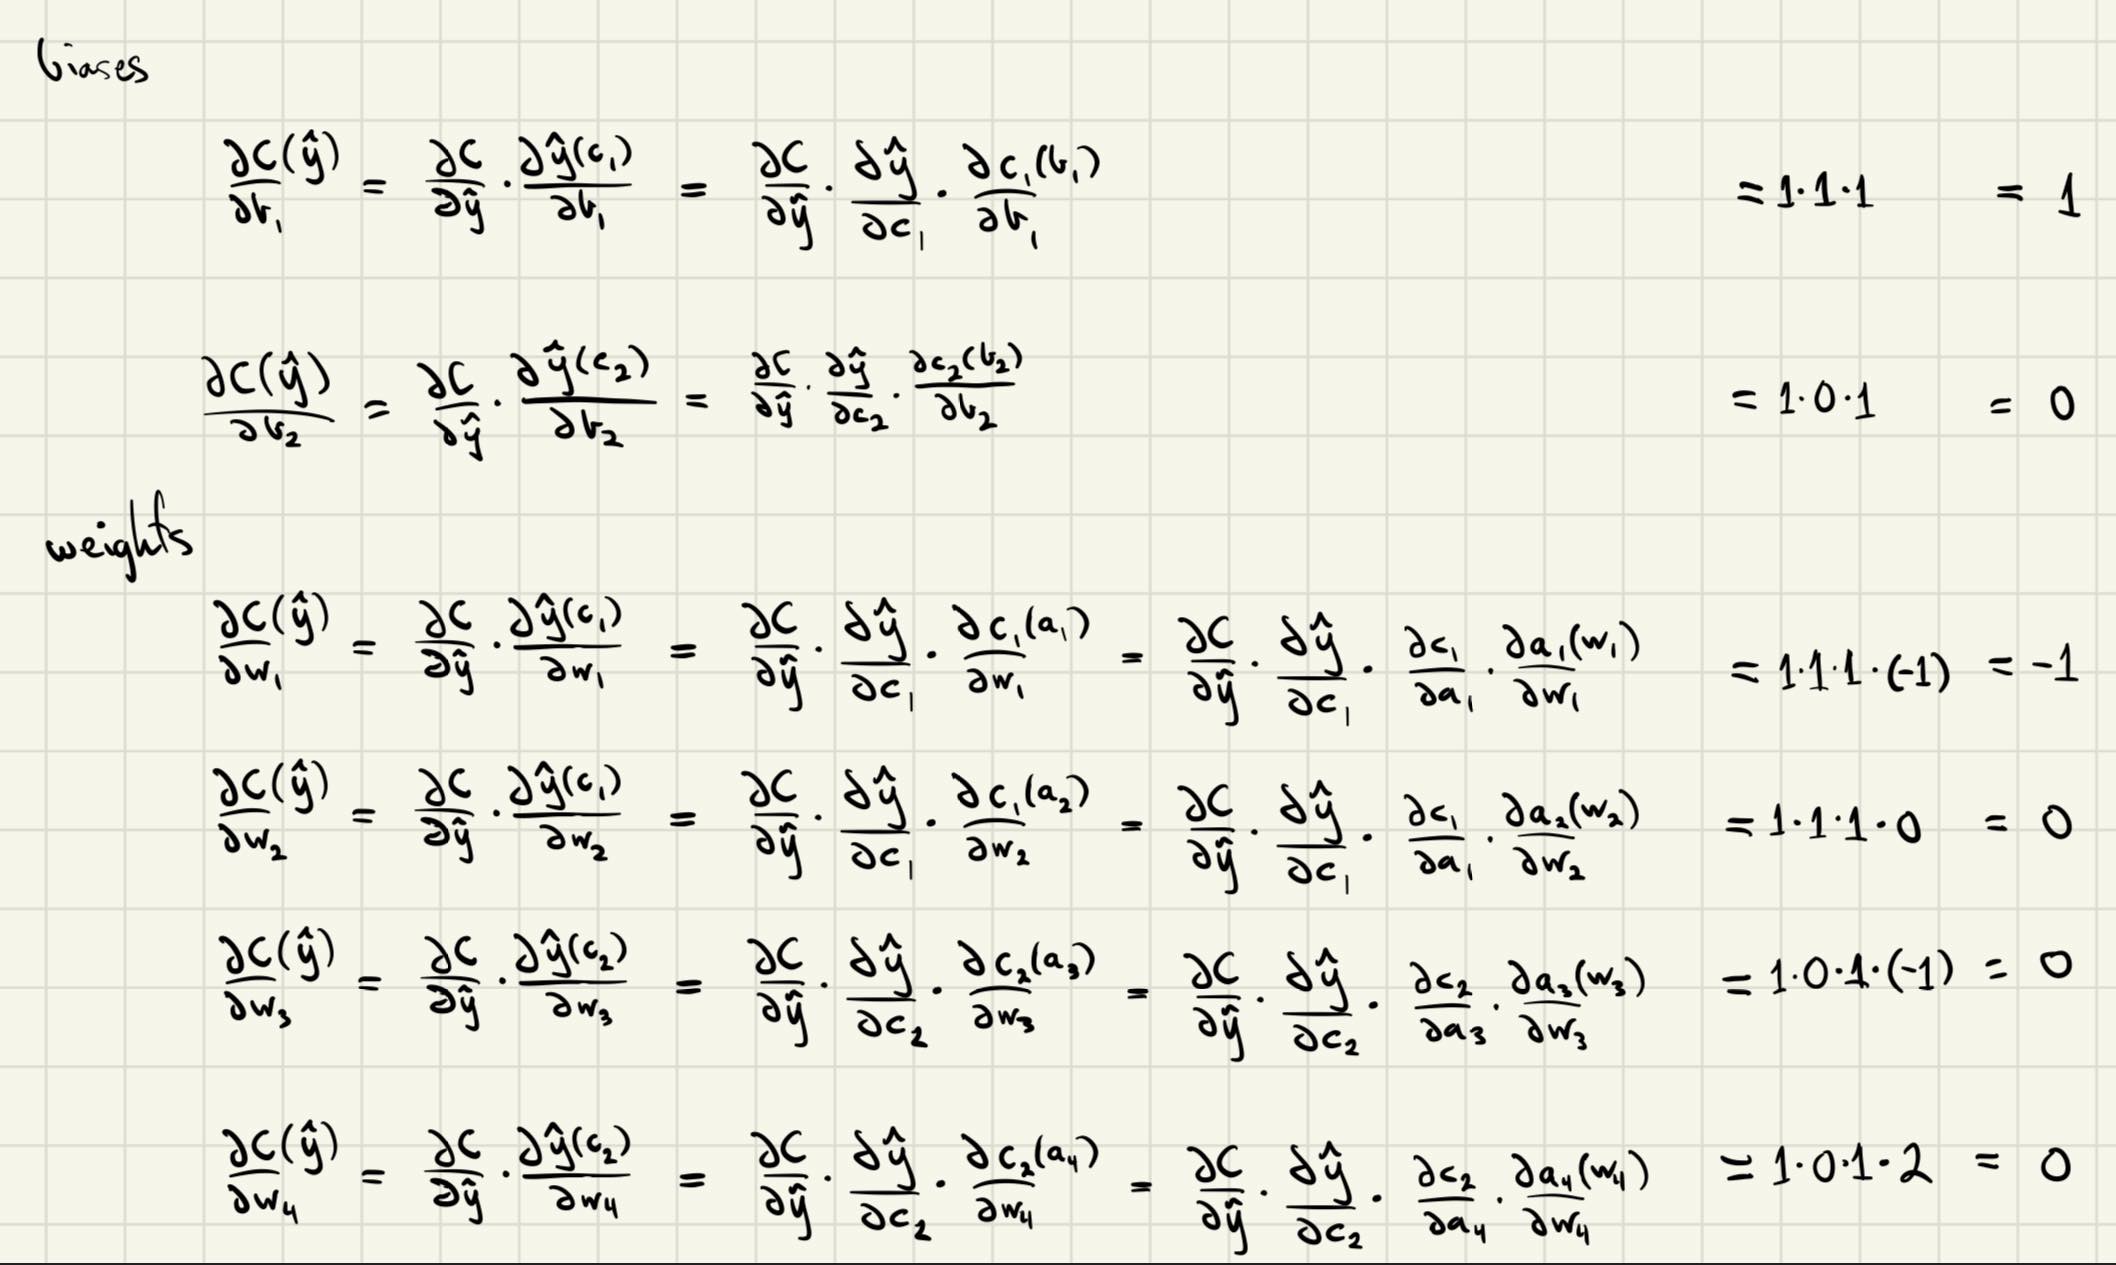 biases
∂C(ŷ)/∂b₁ = ∂C/∂ŷ · ∂ŷ(c₁)/∂b₁ = ∂C/∂ŷ · ∂ŷ/∂c₁ · ∂c₁(b₁)/∂b₁ = 1·1·1 = 1
∂C(ŷ)/∂b₂ = ∂C/∂ŷ · ∂ŷ(c₂)/∂b₂ = ∂C/∂ŷ · ∂ŷ/∂c₂ · ∂c₂(b₂)/∂b₂ = 1·0·1 = 0
weights
∂C(ŷ)/∂w₁ = ∂C/∂ŷ · ∂ŷ(c₁)/∂w₁ = ∂C/∂ŷ · ∂ŷ/∂c₁ · ∂c₁(a₁)/∂w₁ = ∂C/∂ŷ · ∂ŷ/∂c₁ · ∂c₁/∂a₁ · ∂a₁(w₁)/∂w₁ = 1·1·1·(-1) = -1
∂C(ŷ)/∂w₂ = ∂C/∂ŷ · ∂ŷ(c₁)/∂w₂ = ∂C/∂ŷ · ∂ŷ/∂c₁ · ∂c₁(a₂)/∂w₂ = ∂C/∂ŷ · ∂ŷ/∂c₁ · ∂c₁/∂a₁ · ∂a₂(w₂)/∂w₂ = 1·1·1·0 = 0
∂C(ŷ)/∂w₃ = ∂C/∂ŷ · ∂ŷ(c₂)/∂w₃ = ∂C/∂ŷ · ∂ŷ/∂c₂ · ∂c₂(a₃)/∂w₃ = ∂C/∂ŷ · ∂ŷ/∂c₂ · ∂c₂/∂a₃ · ∂a₃(w₃)/∂w₃ = 1·0·1·(-1) = 0
∂C(ŷ)/∂w₄ = ∂C/∂ŷ · ∂ŷ(c₂)/∂w₄ = ∂C/∂ŷ · ∂ŷ/∂c₂ · ∂c₂(a₄)/∂w₄ = ∂C/∂ŷ · ∂ŷ/∂c₂ · ∂c₂/∂a₄ · ∂a₄(w₄)/∂w₄ = 1·0·1·2 = 0